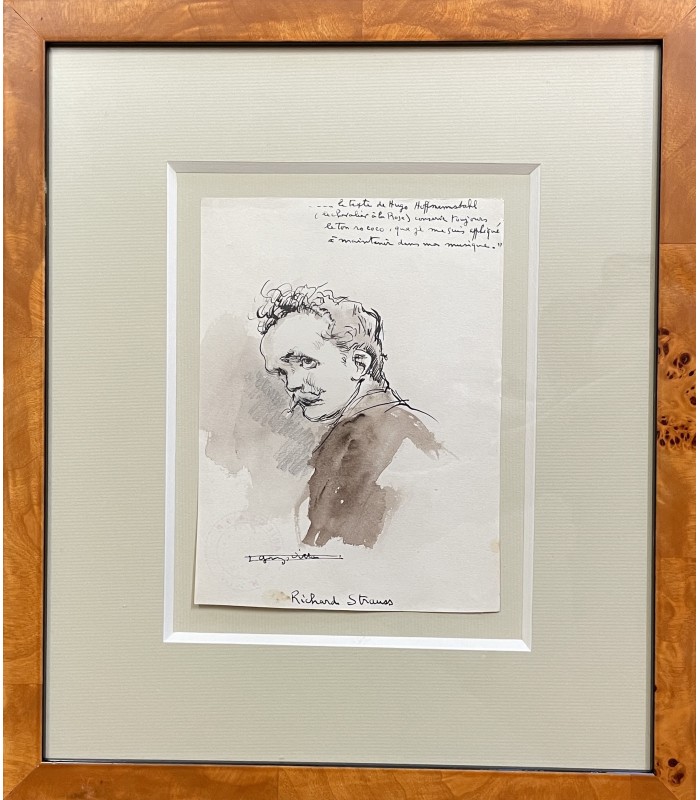 --- le texte de Hugo Hoffmemstahl
(le chevalier à la Rose) conserve toujours
le ton rococo, que je me suis appliqué
à maintenir dans ma musique."
Richard Strauss